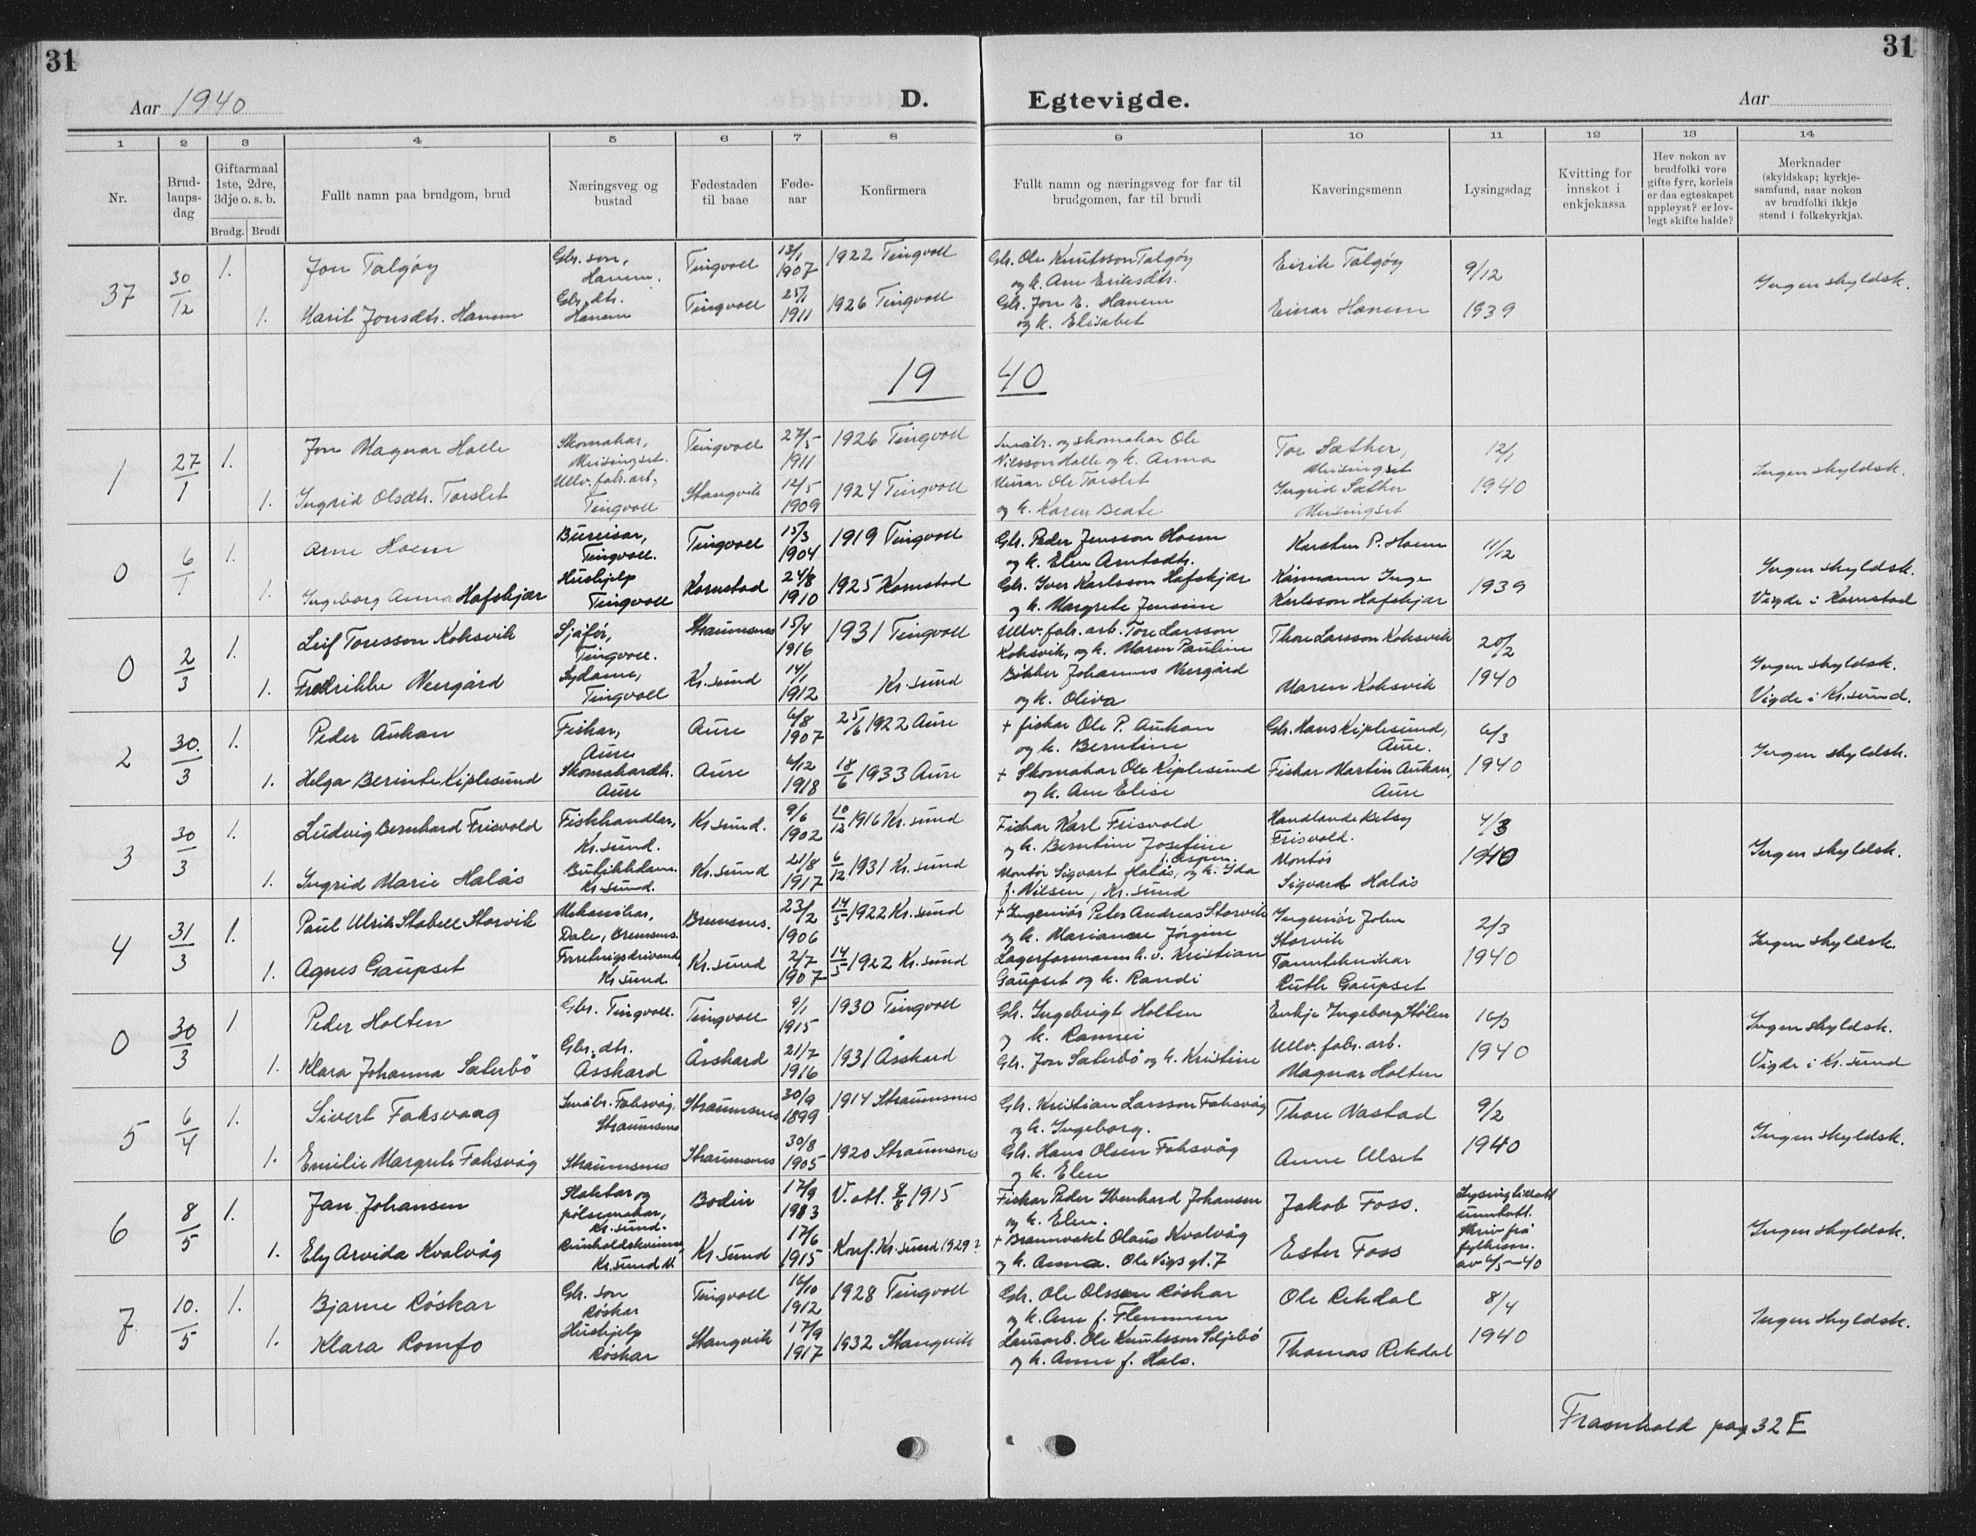 31
31
Aar 1940
D.
Egtevigde.
Aar
1 2 3 4 5 6 7 8 9 10 11 12 13 14
Nr.
Brud-
laups-
dag
Giftarmaal
1ste, 2dre,
3dje o. s. b.
Brudg. Brudi
Fullt namn paa brudgom, brud
Næringsveg og
bustad
Fødestaden
til baae
Føde-
aar
Konfirmera
Fullt namn og næringsveg for far til
brudgomen, far til brudi
Kaveringsmenn
Lysingsdag
Kvitting for
innskot i
enkjekassa
Hev nokon av
brudfolki vore
gifte fyrr, korleis
er daa egteskapet
uppløyst? er lov-
legt skifte halde?
Merknader
(skyldskap; kyrkje-
samfund, naar nokon
av brudfolki ikkje
stend i folkekyrkja).
37 30/12 1. Jon Talgøy Gbr. son, Hanem. Tingvoll 13/1 1907 1922 Tingvoll Gbr. Ole Knutsson Talgøy og k. Ane Eriksdtr. Eirik Talgøy 9/12 Ingen skyldsk.
1. Marit Jonsdtr. Hanem Gbr. dtr. Hanem Tingvoll 25/1 1911 1926 Tingvoll Gbr. Jon E. Hanem og k. Elisabet Einar Hanem 1939
19 40
1 27/1 1. Jon Magnar Halle Skomakar, Meisingset. Tingvoll 27/5 1911 1926 Tingvoll Småbr. og skomakar Ole Nilsson Halle og k. Anna Tore Sæther, Meisingset 12/1 Ingen skyldsk.
1. Ingrid Olsdtr. Torslet Ullv. fabr. arb., Tingvoll Stangvik 12/5 1909 1924 Tingvoll Murar Ole Torslet og k. Karen Beate Ingrid Sæther Meisingset 1940
0 6/1 1. Arne Hoem Bureisar, Tingvoll. Tingvoll 15/3 1904 1919 Tingvoll Gbr. Peder Jensson Hoem og k. Elen Arntsdtr. Karsten P. Hoem 11/12 Ingen skyldsk.
1. Ingeborg Anna Hafskjær Hushjelp Tingvoll Kornstad 24/8 1910 1925 Kornstad Gbr. Iver Karlsson Hafskjær og k. Margrete Jensine Kårmann Inge Karlsson Hafskjær 1939 Vigde i Kornstad
0 2/3 1. Leif Toresson Koksvik Sjåfør, Tingvoll. Straumsnes 15/4 1916 1931 Tingvoll Ullv. fabr. arb. Tore Larsson Koksvik, og k. Maren Pauline Thore Larsson Koksvik 20/2 Ingen skyldsk.
1. Fredrikke Neergård Sydame, Tingvoll Kr.sund 14/1 1912 Kr. sund Bøkker Johannes Neergård og k. Oliva Maren Koksvik 1940 Vigde i Kr.sund.
2 30./3 1. Peder Aukan Fiskar, Aure Aure 6/8 1907 25/6 1922 Aure + fiskar Ole P. Aukan og k. Berntine Gbr. Hans Kiplesund, Aure. 6/3 Ingen skyldsk.
1. Helga Berinte Kiplesund Skomakardtr. Aure Aure 4/12 1918 18/6 1933 Aure + Skomakar Ole Kiplesund og k. Ane Elise Fiskar Martin Aukan, Aure 1940
3 30/3 1. Ludvig Bernhard Frisvold Fiskhandler, Kr.sund. Kr.sund. 9/6 1902 10/12 1916 Kr. sund Fiskar Karl Frisvold og k. Berntine Josefine f. Aspen. Handlande Betsy Frisvold. 4/3 Ingen skyldsk.
1. Ingrid Marie Halås Butikkdame. Kr. sund. Kr. sund 21/8 1917 6/12 1931 Kr. sund Montør Sigvart Halås, og k. Ida f. Nilsen, Kr. sund Montør Sigvard Halås 1940
4 31/3 1. Paul Ulrik Stabell Storvik Mekanikar, Dale, Bremsnes. Bremsnes. 23/2 1906 14/5 1922 Kr. sund + Ingeniør Peter Andreas Storvik og k. Marianne Jørgine Ingeniør John Storvik 2/3 Ingen skyldsk.
1. Agnes Gaupset Forretnigsdrivande, Kr. sund Kr. sund 2/7 1907 14/5 1922 Kr. sund Lagerformann h. v. Kristian Gaupset og k. Randi Tannteknikar Ruth Gaupset 1940
0 30/3 1. Peder Holten Gbr. Tingvoll. Tingvoll 9/1 1915 1930 Tingvoll Gbr. Ingebrigt Holten og k. Rannei Enkje Ingeborg Stølen 16/3 Ingen skyldsk.
1. Klara Johanna Sæterbø Gbr. dtr. Åsskard Åsskard 21/7 1916 1931 Åsskard Gbr. Jon Sæterbø og k. Kristine Ullv. fabr. arb. Magnar Holten 1940 Vigde i Kr. sund
5 6/4 1. Sivert Foksvaag Småbr. Foksvåg, Straumsnes Straumsnes 30/9 1899 1914 Straumsnes Gbr. Kristian Larsson Foksvåg og k. Ingeborg. Thore Nastad 9/2 Ingen skyldsk.
1. Emilie Margrete Foksvåg Straumsnes Straumsnes 30/8 1905 1920 Straumsnes Gbr. Hans Olsen Foksvåg og k. Elen Anne Ulset 1940
6 8/5 1. Jan Johansen Slaktar og pølsemakar, Kr. sund. Bodin 17/9 1903 V. att. 8/8 1915 Fiskar Peder Ibenhard Johansen og k. Elen. Jakob Foss. Lysing Ingen skyldsk.
1. Ely Arvida Kvalvåg Kr. sund N. Kr. sund 17/6 1915 Konf. Kr. sund 1929? + Brannvakt Olaus Kvalvåg og k. Anna. Ole Vigs gt. 7 Ester Foss av 6/5-40
7 10./5 1. Bjarne Røskar Gbr. son Røskar Tingvoll 16/10 1912 1928 Tingvoll Gbr. Ole Olssen Røskar og k. Ane f. Flemmen Ole Rekdal 8/4 Ingen skyldsk.
1. Klara Romfo Hushjelp Røskar Stangvik 17/9 1917 1932 Stangvik Lausarb. Ole Knutsson Seljebø og k. Anne f. Hals. Thomas Rekdal 1940
Framhald pag 32 E